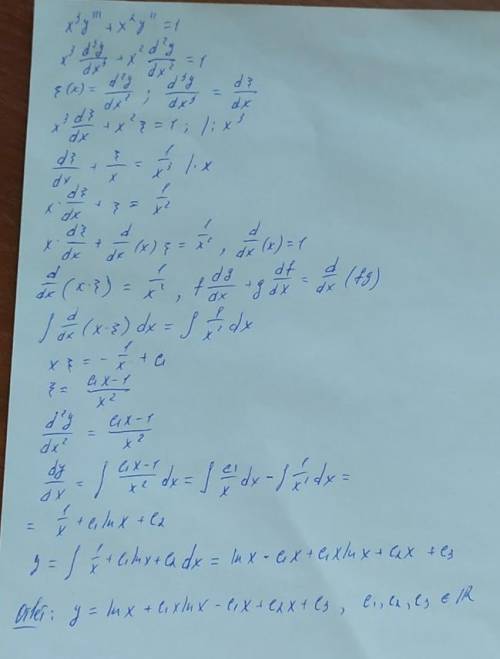 x³y''' + x²y'' = 1
x³ d³y/dx³ + x² d²y/dx² = 1
ξ(x) = d²y/dx² ; d³y/dx³ = dξ/dx
x³ dξ/dx + x²ξ = 1 ; /: x³
dξ/dx + ξ/x = 1/x³ /· x
x · dξ/dx + ξ = 1/x²
x · dξ/dx + d/dx (x) ξ = 1/x² , d/dx (x) = 1
d/dx (x·ξ) = 1/x² , f dg/dx + g df/dx = d/dx (fg)
∫ d/dx (x·ξ) dx = ∫ 1/x² dx
xξ = - 1/x + c₁
ξ = (c₁x-1)/x²
d²y/dx² = (c₁x-1)/x²
dy/dx = ∫ (c₁x-1)/x² dx = ∫ c₁/x dx - ∫ 1/x² dx =
= 1/x + c₁lnx + c₂
y = ∫ 1/x + c₁lnx + c₂ dx = lnx - c₁x + c₁xlnx + c₂x + c₃
Ответ: y = lnx + c₁xlnx - c₁x + c₂x + c₃ , c₁, c₂, c₃ ∈ ℝ